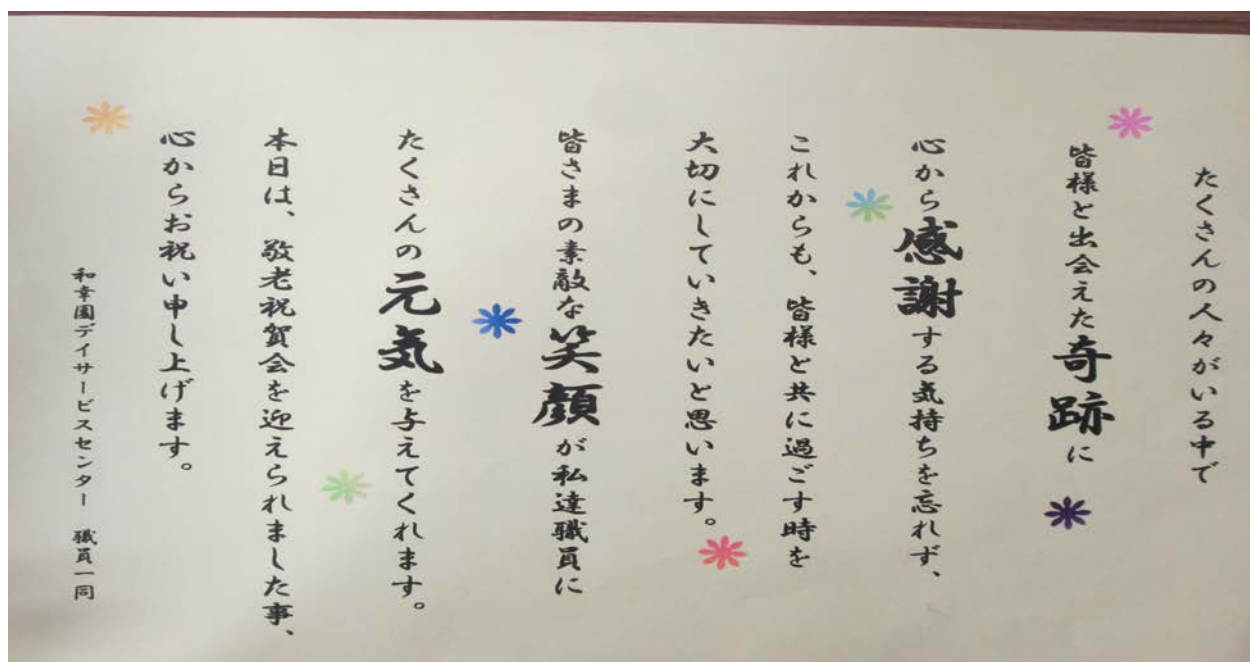 たくさんの人々がいる中で
皆様と出会えた奇跡に
心から感謝する気持ちを忘れず、
これからも、皆様と共に過ごす時を
大切にしていきたいと思います。
皆さまの素敵な笑顔が私達職員に
たくさんの元気を与えてくれます。
本日は、敬老祝賀会を迎えられました事、
心からお祝い申し上げます。
和幸園デイサービスセンター 職員一同